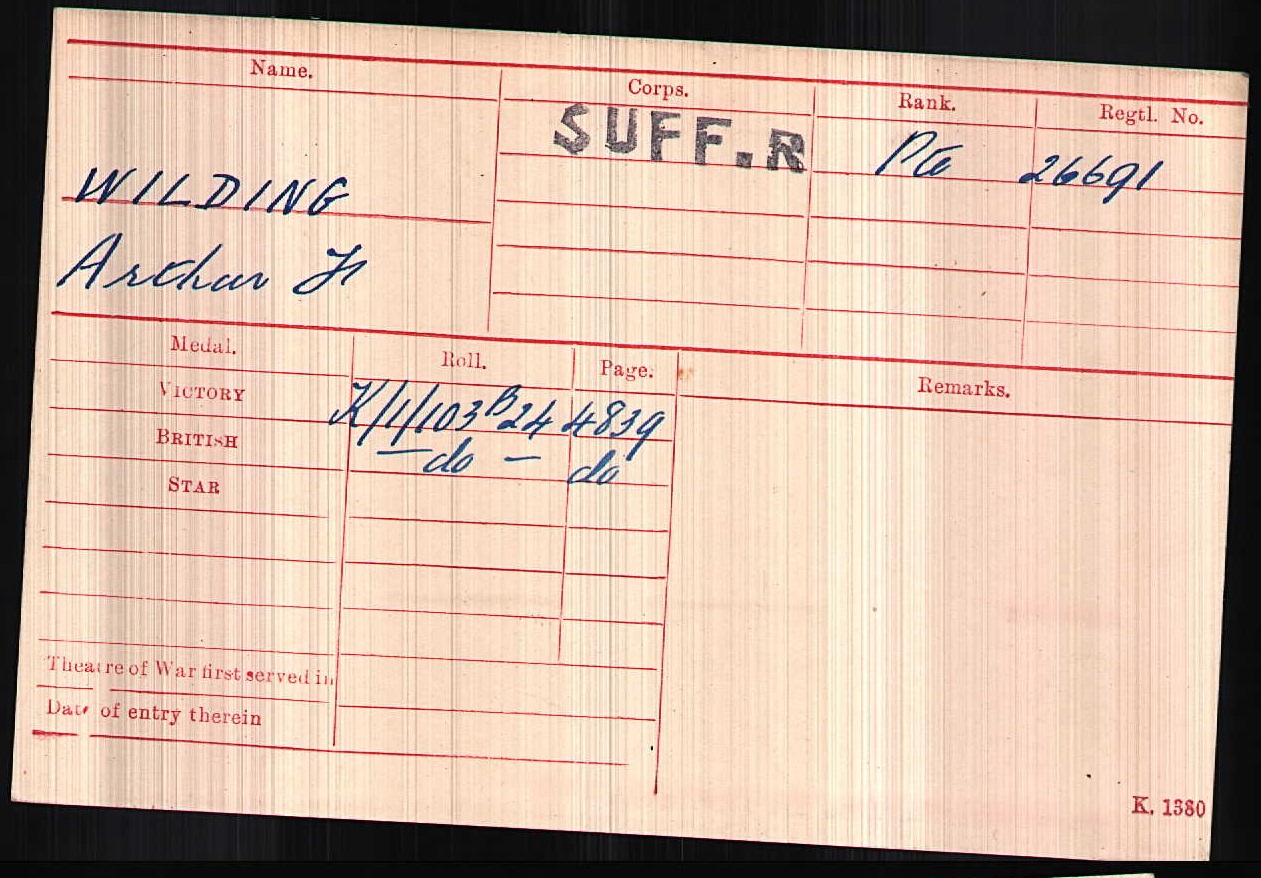 Name. Corps. Rank. Regtl. No.
SUFF.R Pte 26691
WILDING
Arthur H
Medal. Roll. Page. Remarks.
VICTORY K/1/103 B24 4839
BRITISH —do— do
STAR
Theatre of War first served in
Date of entry therein
K. 1380